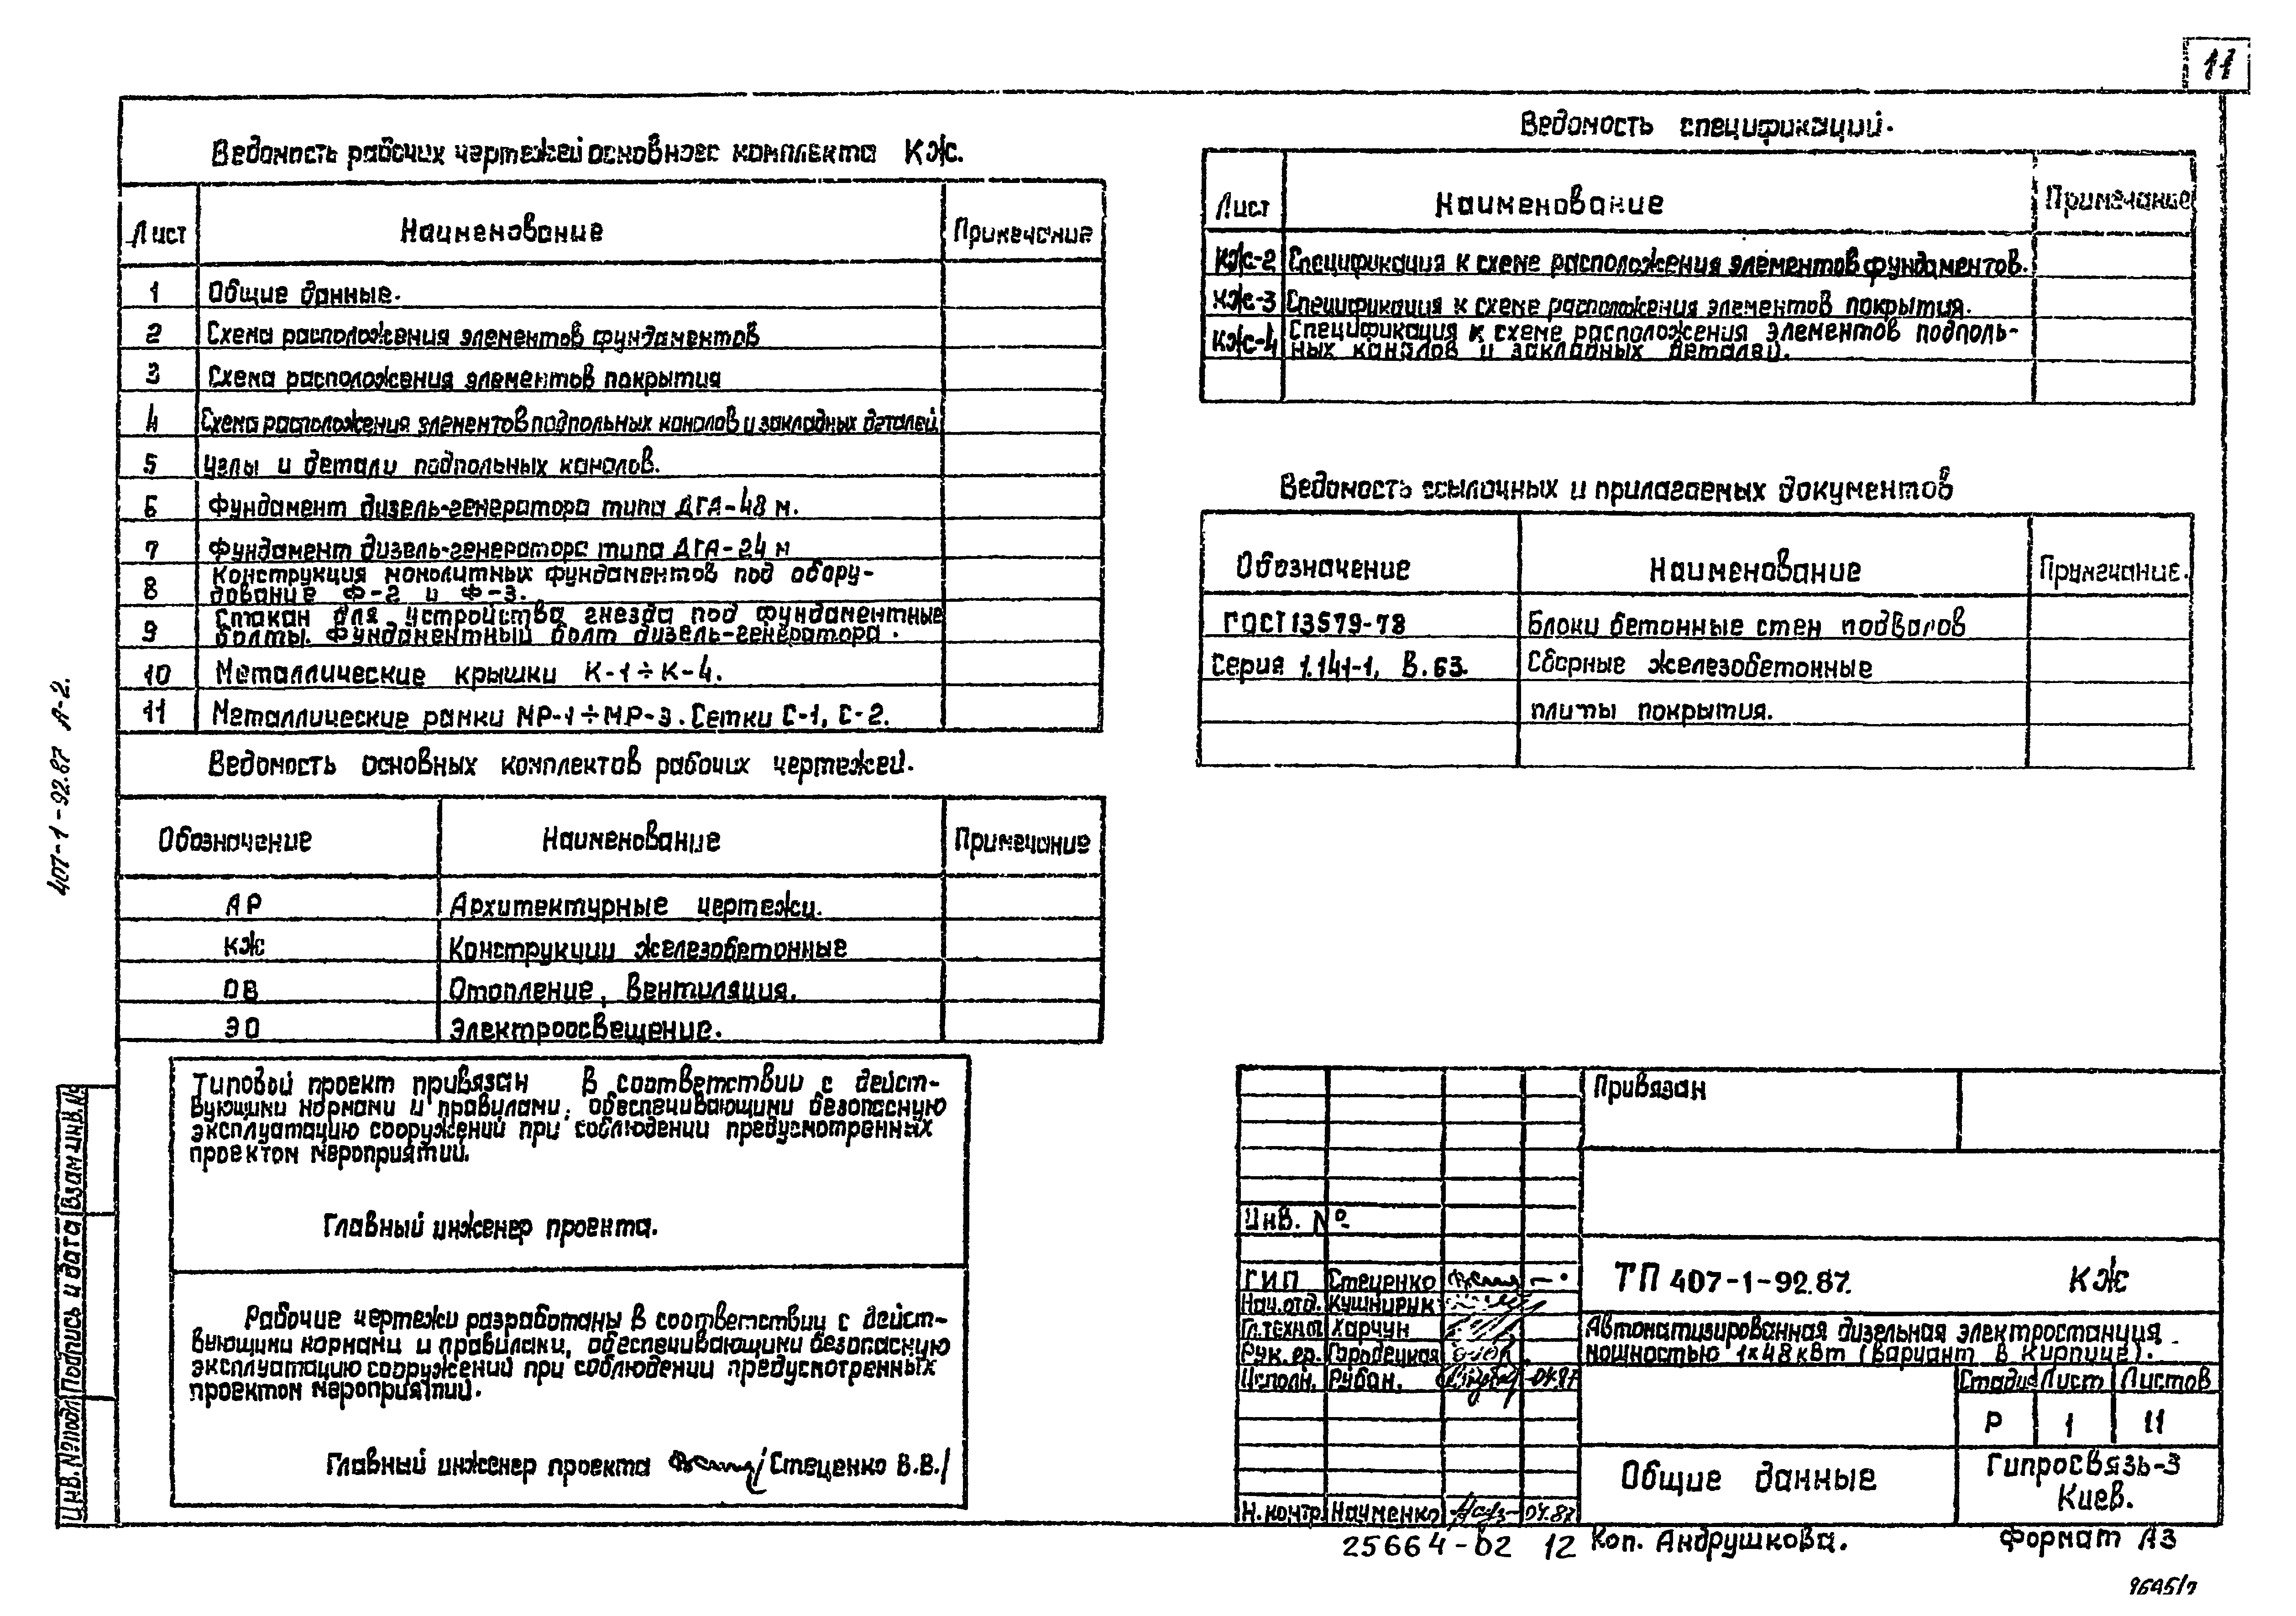 11
Ведомость рабочих чертежей основного комплекта КЖ.
Лист Наименование Примечание
1 Общие данные.
2 Схема расположения элементов фундаментов
3 Схема расположения элементов покрытия
4 Схема расположения элементов подпольных каналов и закладных деталей
5 Узлы и детали подпольных каналов.
6 Фундамент дизель-генератора типа ДГА-48 м.
7 Фундамент дизель-генератора типа ДГА-24 м
8 Конструкция монолитных фундаментов под обору-
дование Ф-2 и Ф-3.
9 Стакан для устройства гнезда под фундаментные
болты. Фундаментный болт дизель-генератора.
10 Металлические крышки К-1÷К-4.
11 Металлические рамки МР-1÷МР-3. Сетки С-1, С-2.
Ведомость основных комплектов рабочих чертежей.
Обозначение Наименование Примечание
АР Архитектурные чертежи.
КЖ Конструкции железобетонные
ОВ Отопление, вентиляция.
ЭО Электроосвещение.
Типовой проект привязан в соответствии с дейст-
вующими нормами и правилами, обеспечивающими безопасную
эксплуатацию сооружений при соблюдении предусмотренных
проектом мероприятий.
Главный инженер проекта.
Рабочие чертежи разработаны в соответствии с дейст-
вующими нормами и правилами, обеспечивающими безопасную
эксплуатацию сооружений при соблюдении предусмотренных
проектом мероприятий.
Главный инженер проекта /Стеценко В.В./
Ведомость спецификаций.
Лист Наименование Примечание
КЖ-2 Спецификация к схеме расположения элементов фундаментов.
КЖ-3 Спецификация к схеме расположения элементов покрытия.
КЖ-4 Спецификация к схеме расположения элементов подполь-
ных каналов и закладных деталей.
Ведомость ссылочных и прилагаемых документов
Обозначение Наименование Примечание.
ГОСТ 13579-78 Блоки бетонные стен подвалов
Серия 1.141-1, В.63. Сборные железобетонные
плиты покрытия.
Привязан
Инв. №
ГИП Стеценко
Нач.отд. Кушнирук
Гл.техно Харчун
Рук.гр. Городецкая
Исполн. Рубан. 04.87
Н.контр. Науменко 04.87
ТП 407-1-92.87. КЖ
Автоматизированная дизельная электростанция
мощностью 1×48 кВт (вариант в кирпиче).
Стадия Лист Листов
Р 1 11
Общие данные
Гипросвязь-3
Киев.
25664-02 12 Коп. Андрушкова. Формат А3
407-1-92.87 А-2.
Инв. № подл. Подпись и дата Взам инв. №